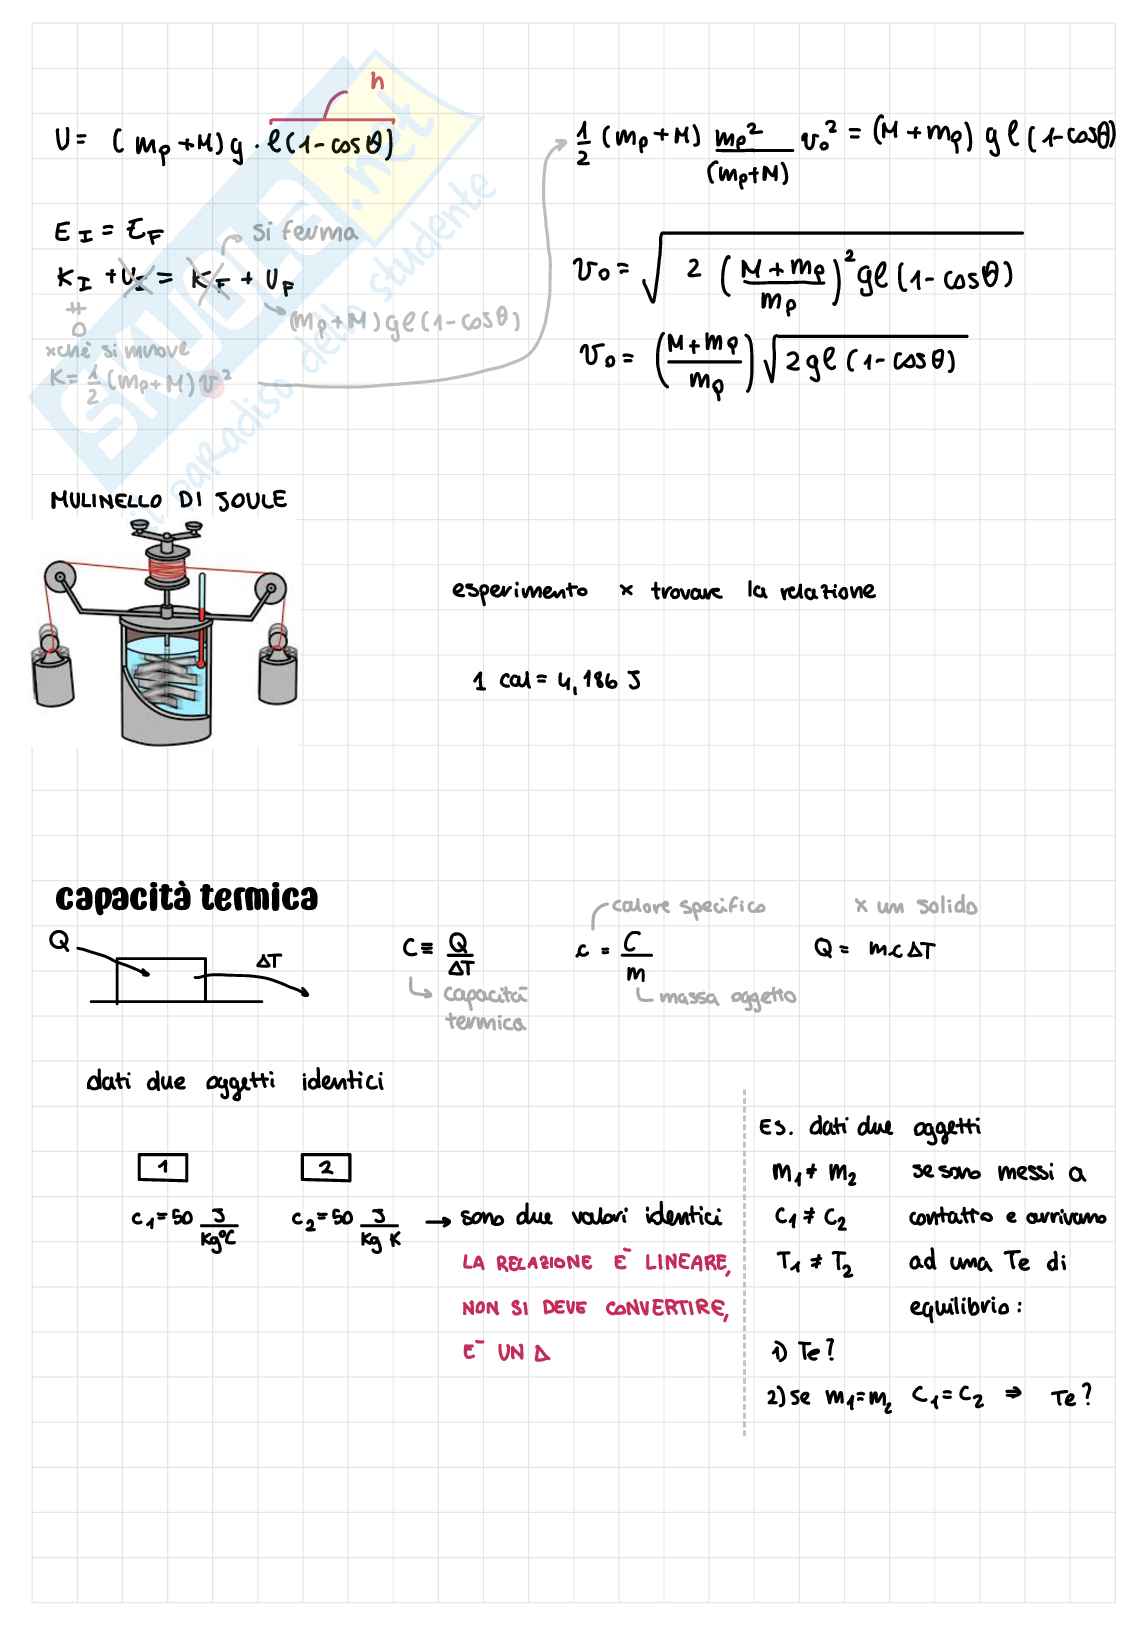 h
U = (mp + M) g · l (1 - cos θ)
E I = E F
si ferma
K I + U I = K F + U F
≠
0
(mp + M) g l (1 - cos θ)
xchè si muove
K = 1/2 (mp + M) v²
1/2 (mp + M) mp²/(mp + M) v₀² = (M + mp) g l (1 - cos θ)
v₀ = √ 2 ((M + mp)/mp)² g l (1 - cos θ)
v₀ = ((M + mp)/mp) √ 2 g l (1 - cos θ)
SKUOLA.net
il paradiso dello studente
MULINELLO DI JOULE
esperimento x trovare la relazione
1 cal = 4,186 J
capacità termica
Q
ΔT
C ≡ Q/ΔT
capacità
termica
calore specifico
c = C/m
massa oggetto
x un solido
Q = m c ΔT
dati due oggetti identici
1
2
c₁ = 50 J/Kg°C
c₂ = 50 J/Kg K → sono due valori identici
LA RELAZIONE È LINEARE,
NON SI DEVE CONVERTIRE,
È UN Δ
ES. dati due oggetti
m₁ ≠ m₂ se sono messi a
c₁ ≠ c₂ contatto e arrivano
T₁ ≠ T₂ ad una Te di
equilibrio:
1) Te?
2) se m₁ = m₂ c₁ = c₂ ⇒ Te?